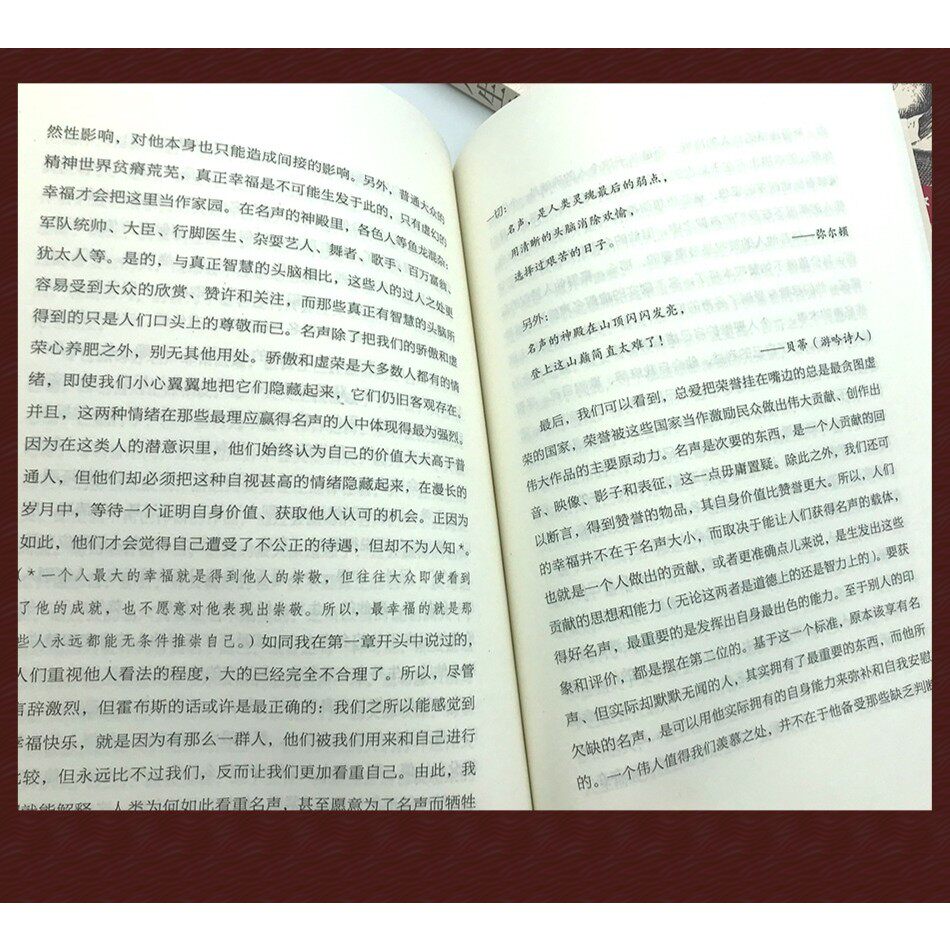 然性影响，对他本身也只能造成间接的影响。另外，普通大众的
精神世界贫瘠荒芜，真正幸福是不可能生发于此的，只有虚幻的
幸福才会把这里当作家园。在名声的神殿里，各色人等鱼龙混杂：
军队统帅、大臣、行脚医生、杂耍艺人、舞者、歌手、百万富翁、
犹太人等。是的，与真正智慧的头脑相比，这些人的过人之处更
容易受到大众的欣赏、赞许和关注，而那些真正有智慧的头脑所
得到的只是人们口头上的尊敬而已。名声除了把我们的骄傲和虚
荣心养肥之外，别无其他用处。骄傲和虚荣是大多数人都有的情
绪，即使我们小心翼翼地把它们隐藏起来，它们仍旧客观存在。
并且，这两种情绪在那些最理应赢得名声的人中体现得最为强烈。
因为在这类人的潜意识里，他们始终认为自己的价值大大高于普
通人，但他们却必须把这种自视甚高的情绪隐藏起来，在漫长的
岁月中，等待一个证明自身价值、获取他人认可的机会。正因为
如此，他们才会觉得自己遭受了不公正的待遇，但却不为人知*。
（*一个人最大的幸福就是得到他人的崇敬，但往往大众即使看到
了他的成就，也不愿意对他表现出崇敬。所以，最幸福的就是那
些人永远都能无条件推崇自己。）如同我在第一章开头中说过的，
人们重视他人看法的程度，大的已经完全不合理了。所以，尽管
言辞激烈，但霍布斯的话或许是最正确的：我们之所以能感觉到
幸福快乐，就是因为有那么一群人，他们被我们用来和自己进行
比较，但永远比不过我们，反而让我们更加看重自己。由此，我
们就能解释，人类为何如此看重名声，甚至愿意为了名声而牺牲
一切：
名声，是人类灵魂最后的弱点，
用清晰的头脑消除欢愉，
选择过艰苦的日子。
——弥尔顿
另外：
名声的神殿在山顶闪闪发亮，
登上这山巅简直太难了！
——贝蒂（游吟诗人）
最后，我们可以看到，总爱把荣誉挂在嘴边的总是最贪图虚
荣的国家，荣誉被这些国家当作激励民众做出伟大贡献、创作出
伟大作品的主要原动力。名声是次要的东西，是一个人贡献的回
音、映像、影子和表征，这一点毋庸置疑。除此之外，我们还可
以断言，得到赞誉的物品，其自身价值比赞誉更大。所以，人们
的幸福并不在于名声大小，而取决于能让人们获得名声的载体，
也就是一个人做出的贡献，或者更准确点儿来说，是生发出这些
贡献的思想和能力（无论这两者是道德上的还是智力上的）。要获
得好名声，最重要的是发挥出自身最出色的能力。至于别人的印
象和评价，都是摆在第二位的。基于这一个标准，原本该享有名
声、但实际却默默无闻的人，其实拥有了最重要的东西，而他所
欠缺的名声，是可以用他实际拥有的自身能力来弥补和自我安慰
的。一个伟人值得我们羡慕之处，并不在于他备受那些缺乏判断